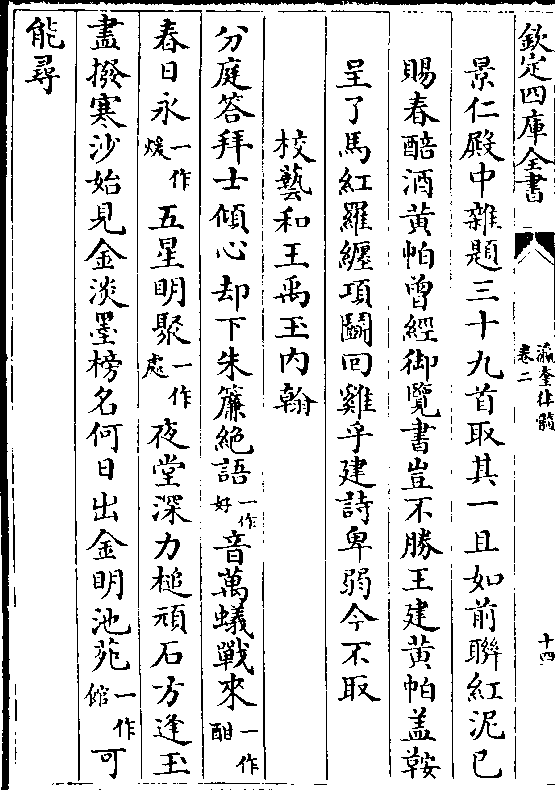 欽定四庫全書
瀛奎律髓
卷二
十四
景仁殿中雜題三十九首取其一且如前聯紅泥已
賜春醅酒黄帕曾經御覽書豈不勝王建黄帕盖鞍
呈了馬紅羅纒項鬭回雞乎建詩卑弱今不取
校藝和王禹玉内翰
分庭答拜士傾心却下朱簾絶語一作好音萬蟻戰來一作酣
春日永一作煖五星明聚一作處夜堂深力槌頑石方逢玉
盡撥寒沙始見金淡墨榜名何日出金明池苑一作館可
能尋